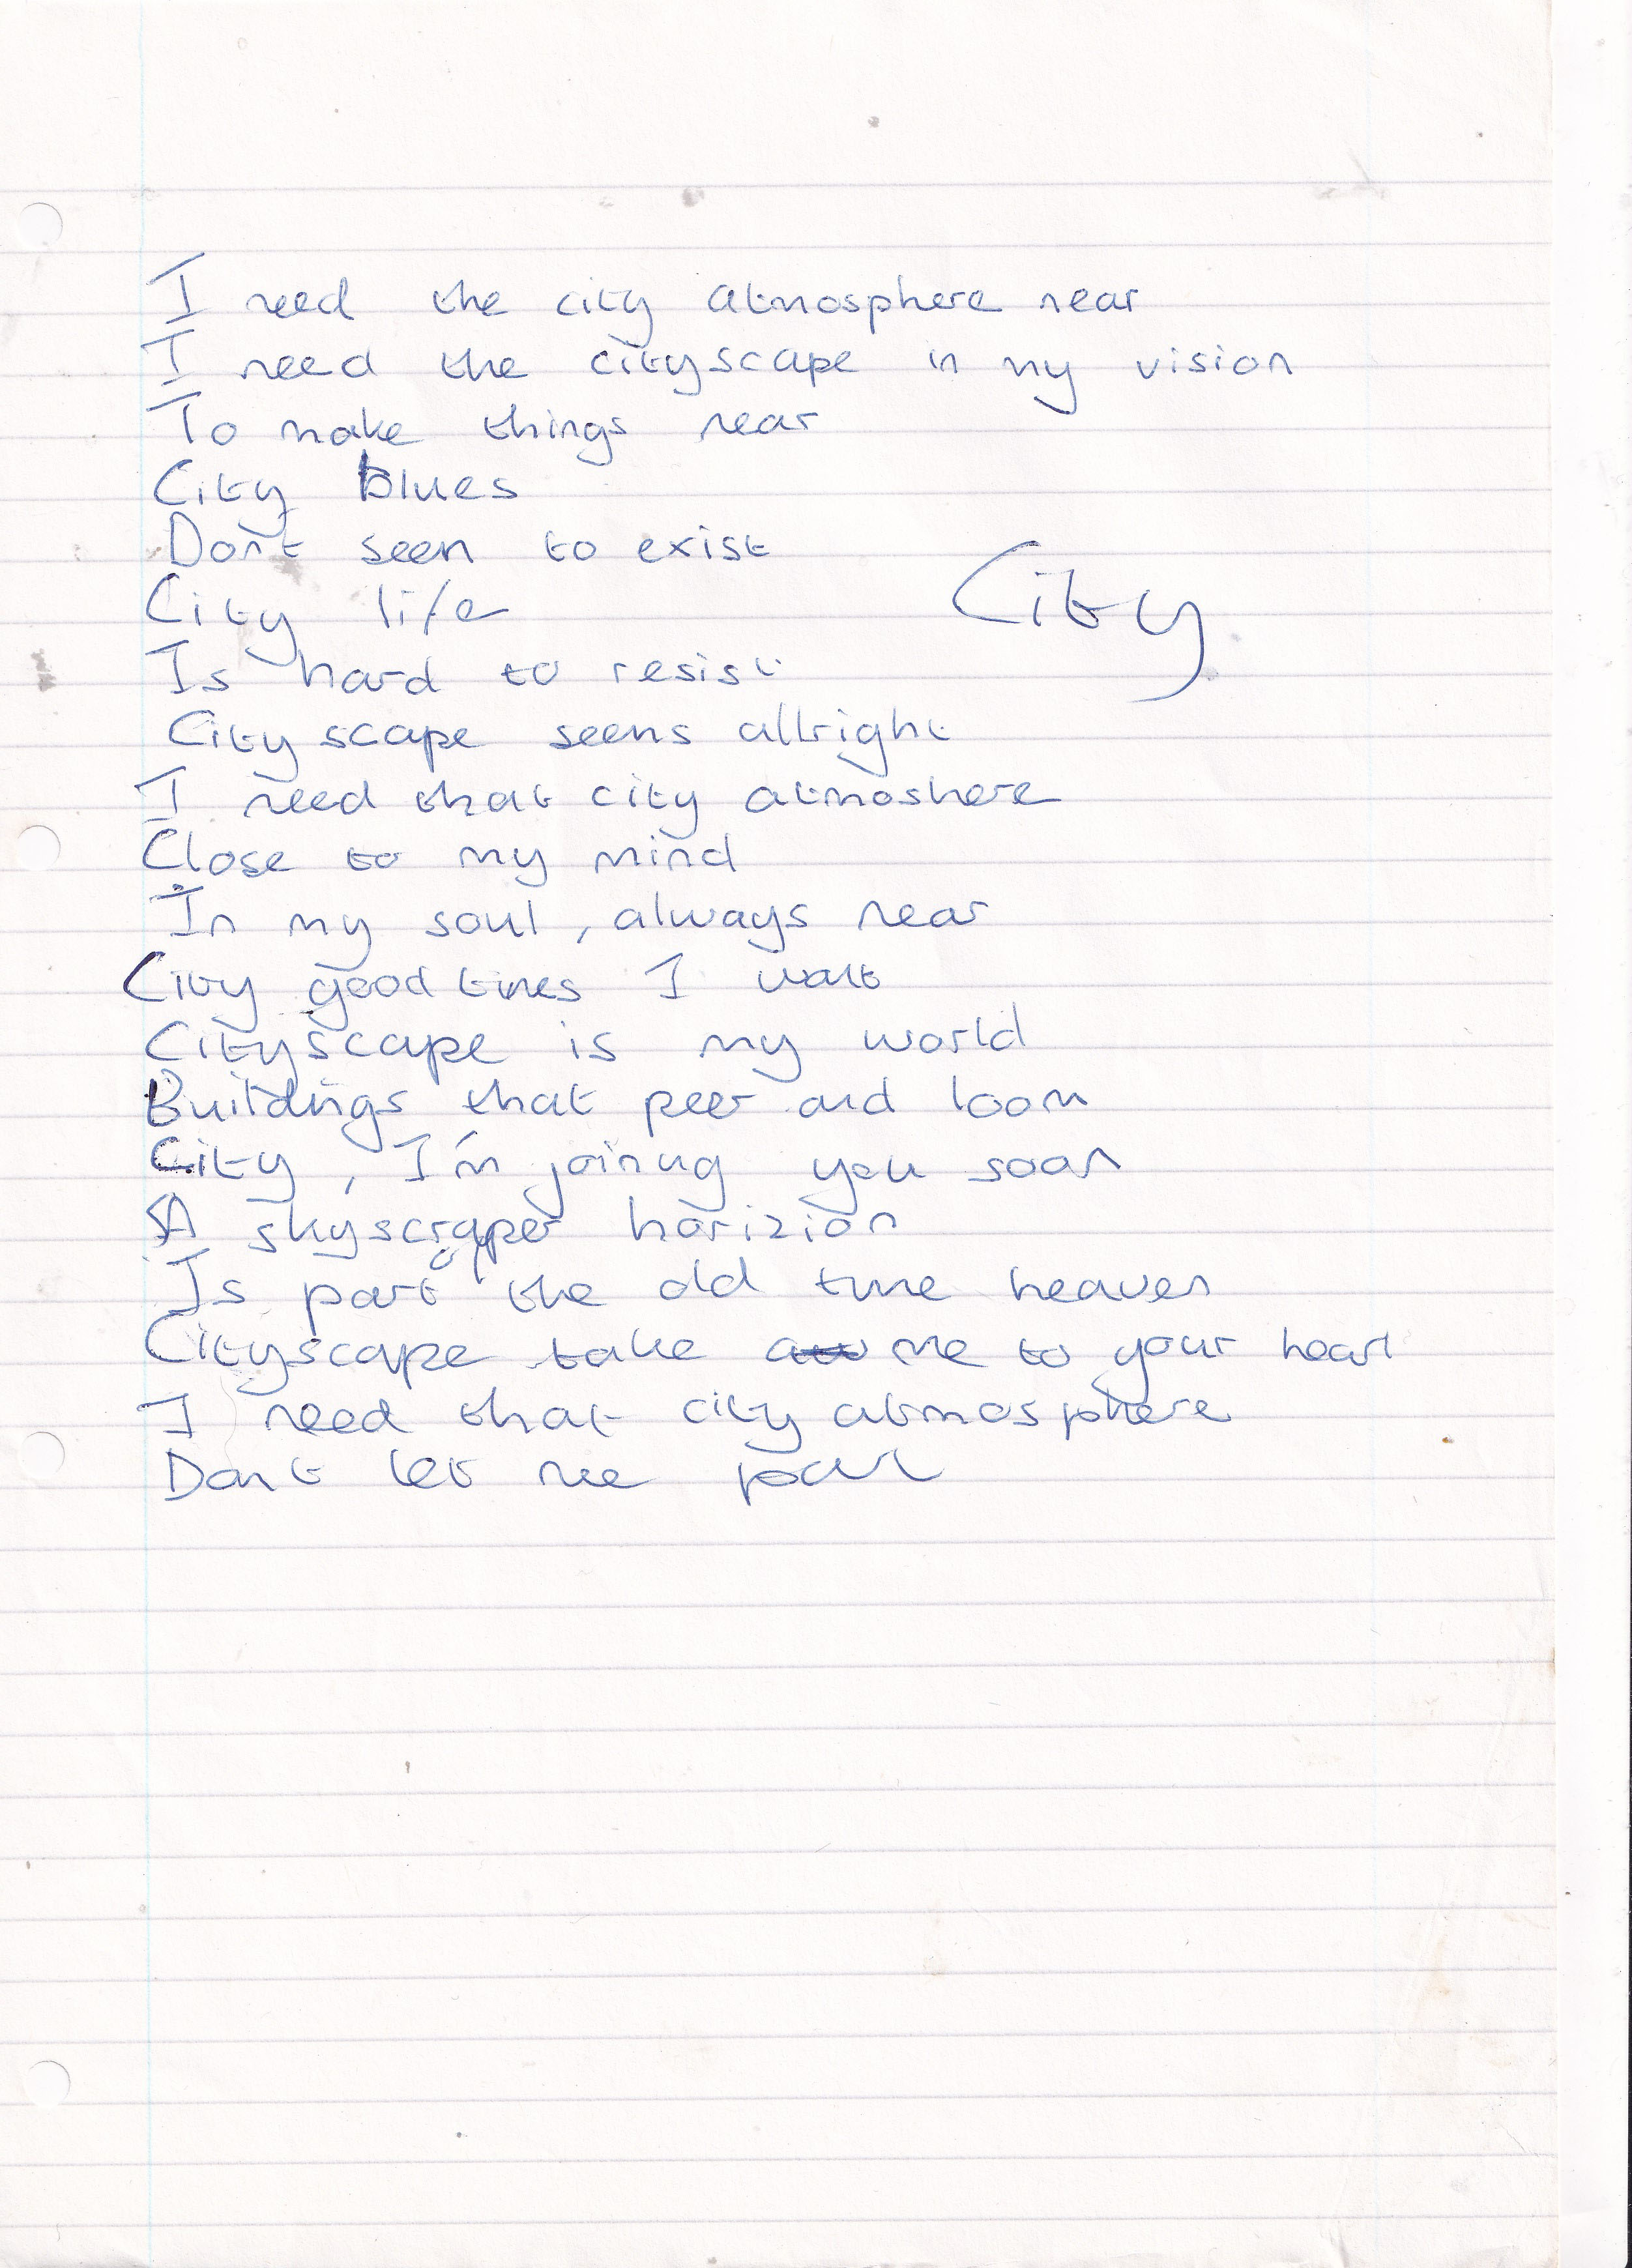 I need the city atmosphere near
I need the cityscape in my vision
To make things near
City blues
Don't seem to exist
City life
City
Is hard to resist
City scape seems allright
I need that city atmoshere
Close to my mind
In my soul, always near
City good times I want
Cityscape is my world
Buildings that peer and loom
City, I'm joining you soon
A skyscraper horizion
Is part of the old time heaven
Cityscape take me to your heart
I need that city atmosphere
Don't let me part